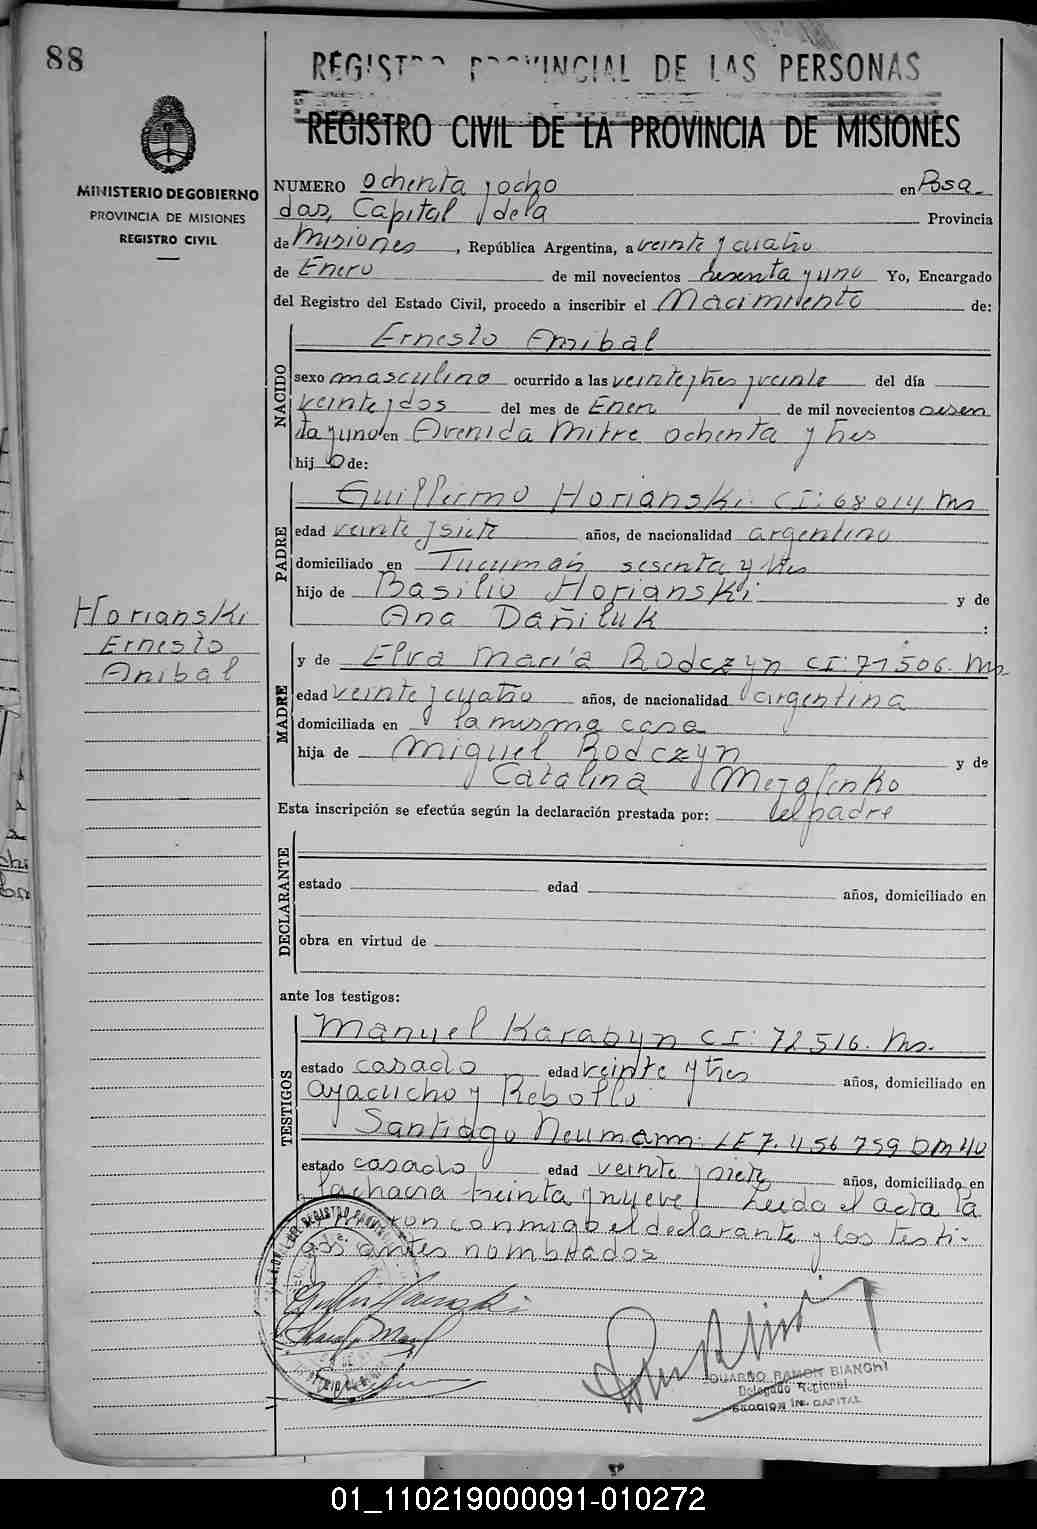 88
REGISTRO PROVINCIAL DE LAS PERSONAS
REGISTRO CIVIL DE LA PROVINCIA DE MISIONES
MINISTERIO DE GOBIERNO
PROVINCIA DE MISIONES
REGISTRO CIVIL
NUMERO ochenta y ocho en Posa-
das, Capital de la Provincia
de Misiones, República Argentina, a veinte y cuatro
de Enero de mil novecientos sesenta y uno Yo, Encargado
del Registro del Estado Civil, procedo a inscribir el Nacimiento de:
NACIDO
Ernesto Anibal
sexo masculino ocurrido a las veinte y tres y veinte del día
veinte y dos del mes de Enero de mil novecientos sesen
ta y uno en Avenida Mitre ochenta y tres
hij o de:
PADRE
Guillermo Horianski CI: 68014 Ms
edad veinte y siete años, de nacionalidad argentino
domiciliado en Tucumán sesenta y tres
hijo de Basilio Horianski y de
Ana Dañiluk :
Horianski
Ernesto
Anibal
MADRE
y de Elva María Rodczyn CI: 71506. Ms
edad veinte y cuatro años, de nacionalidad argentina
domiciliada en la misma casa
hija de Miguel Rodczyn y de
Catalina
Esta inscripción se efectúa según la declaración prestada por: el padre
DECLARANTE
estado edad años, domiciliado en
obra en virtud de
ante los testigos:
TESTIGOS
Manuel Karabyn CI: 72516. Ms.
estado casado edad veinte y tres años, domiciliado en
Ayacucho y Rebollo
Santiago Neumann: LE 7.456 759 DM 40
estado casado edad veinte y siete años, domiciliado en
Lachacra treinta y nueve Leida el acta la
conmigo el declarante y los testi-
gos antes nombrados
EDUARDO RAMON BIANCHI
Delegado Regional
SECCION 1ra. CAPITAL
01_110219000091-010272